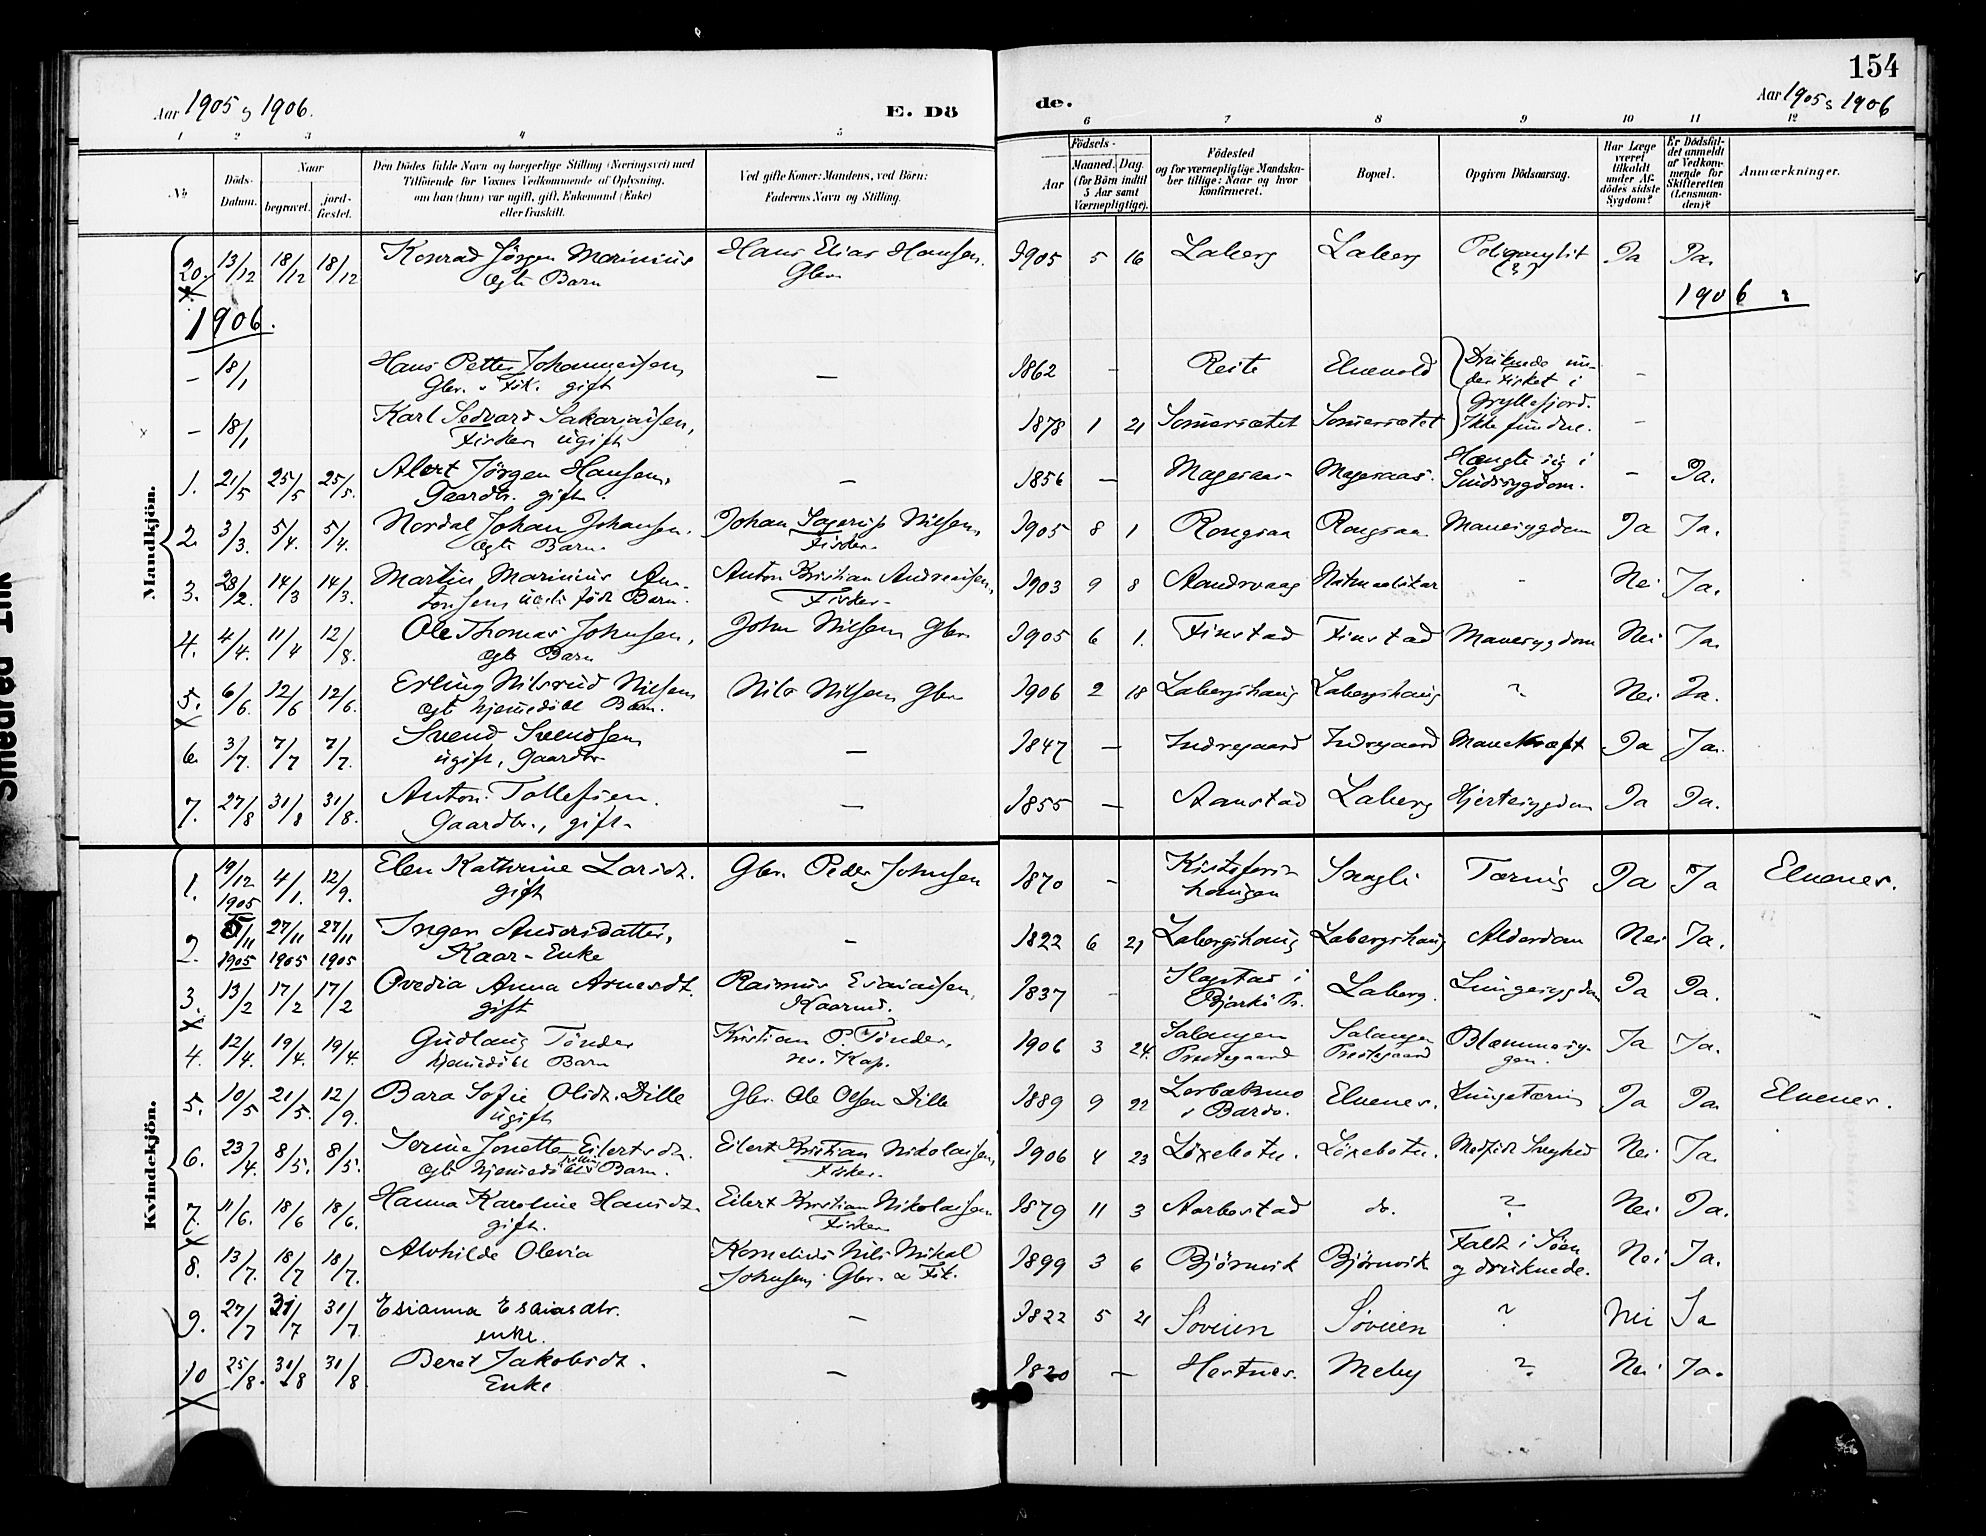 154
Aar 1905 & 1906.
E. Dö
de.
Aar 1905 & 1906
1 2 3 4 5 6 7 8 9 10 11 12
No.
Döds-Datum.
Naar
begravet.
jord-fæstet.
Den Dödes fulde Navn og borgerlige Stilling (Næringsvei) med
Tilföiende for Voxnes Vedkommende af Oplysning,
om han (hun) var ugift, gift, Enkemand (Enke)
eller fraskilt.
Ved gifte Koner: Mandens, ved Börn:
Faderens Navn og Stilling.
Födsels-
Aar
Maaned. Dag.
(for Börn indtil
5 Aar samt
Værnepligtige).
Födested
og for værnepligtige Mandskaber tillige: Naar og hvor
konfirmeret.
Bopæl.
Opgiven Dödsaarsag.
Har Læge
været
tilkaldt
under Afdödes sidste
Sygdom?
Er Dödsfaldet anmeldt
af Vedkommende for
Skifteretten
(Lensmanden)?
Anmærkninger.
Mandkjön.
20. 13/12 18/12 18/12 Konrad Jörgen Marinius Hans Elias Hansen. 1905 5 16 Laberg Laberg Ja Ja.
ægte Barn Gbr. (?)
1906.
1906
- 18/1 Hans Petter Johannessen — 1862 - Reite Elvevold Druknede un- -
Gbr. & Fisk. gift der fisket i
- 18/1 Karl Sedvard Sakariassen, 1878 1 21 Somersætet Somersætet Gryllefjord. -
Fisker ugift Ikke fundne.
1. 21/5 25/5 25/5. Alert Jörgen Hansen, — 1856 — Magesaas Magesaas. Hængte sig i - Ja.
Gaardbr. gift Sindssygdom.
2. 3/3. 5/4. 5/4. Nordal Johan Johansen. Johan Nilsen 1905 8 1 Rongsaa Rongsaa Mavesygdom Ja Ja.
ægte Barn. Fisker.
3. 28/2. 14/3 14/3. Martin Marinius An- Anton Kristian Andreassen, 1903 9 8 Aandsvaag - Nei Ja.
tonsen uægte født Barn. Fisker.
4. 4/4. 11/4 12/8. Ole Thomas Johnsen, John Nilsen Gbr. 1905 6 1. Finstad Finstad Mavesygdom Nei Ja.
ægte Barn
5. 6/6. 12/6 12/6. Erling Nilsrud Nilsen Nils Nilsen Gbr. 1906 2 18 Labergshaug Labergshaug ? Nei Ja.
ægte hjemedöbt Barn.
6. 3/7. 7/7 7/7. Svend Svendsen — 1847 — Indregaard Indregaard Mavekræft Ja Ja.
ugift, Gaardbr.
7. 27/8 31/8 31/8. Anton Tollefsen. — 1855 — Aanstad Laberg Hjertesygdom Ja Ja.
Gaardbr., gift.
Kvindekjön.
1. 19/12 1905 4/1. 12/9. Elen Kathrine Larsdt. Gbr. Peder Johnsen 1870 - Kristofers- Snagli Tæring Ja Ja Elvenes.
gift haugen
2. 5/11 1905 27/11 1905 27/11 1905 Inger Andersdatter, — 1822 6 21 Labergshaug Labergshaug Alderdom Nei Ja.
Kaar-Enke
3. 13/2 17/2 17/2 Ovedia Anna Arnesdt. Rasmus Esaiassen, 1837 - i Laberg. Lungesygdom Ja Ja.
gift Kaarmd. Bjarkö Pr.
4. 12/4. 19/4. 19/4. Gudlaug Tönder Kristian P. Tönder, 1906 3 24. Salangen Salangen Blæmmesy- Ja Ja.
hjemedöbt Barn res. Kap. Prestegaard Prestegaard gen.
5. 10/5 21/5. 12/9. Bara Sofie Olsdt. Dille Gbr. Ole Olsen Dille 1889 9 22 Lerbækmo Elvenes. Lungetæring Ja Ja. Elvenes.
ugift i Bardo.
6. 23/4. 8/5. 8/5. Serine Jonette Eilertsdt. Eilert Kristian Nikolaisen, 1906 4 23 Löxebotn. Löxebotn. Medfödt Svaghed Nei Ja.
ægte hjemedöbt tvilling Barn. Fisker.
7. 11/6. 18/6 18/6. Hanna Karoline Hansdt. Eilert Kristian Nikolaisen 1879 11 3 Aarbostad do. ? Nei Ja.
gift. Fisker
8. 13/7. 18/7 18/7. Alvhilde Olevia Kornelius Nils Mikal 1899 3 6 Bjørnvik Bjørnvik Faldt i Søen Nei Ja.
Johnsen Gbr. & Fisk. og druknede.
9. 27/7 31/7 31/7. Esianna Esaiasdtr. — 1822 5 21 Söveien Söveien ? Nei Ja
enke.
10 25/8. 31/8 31/8 Beret Jakobsdt. — 1820 — Hestnes. Meby ? Nei Ja.
Enke